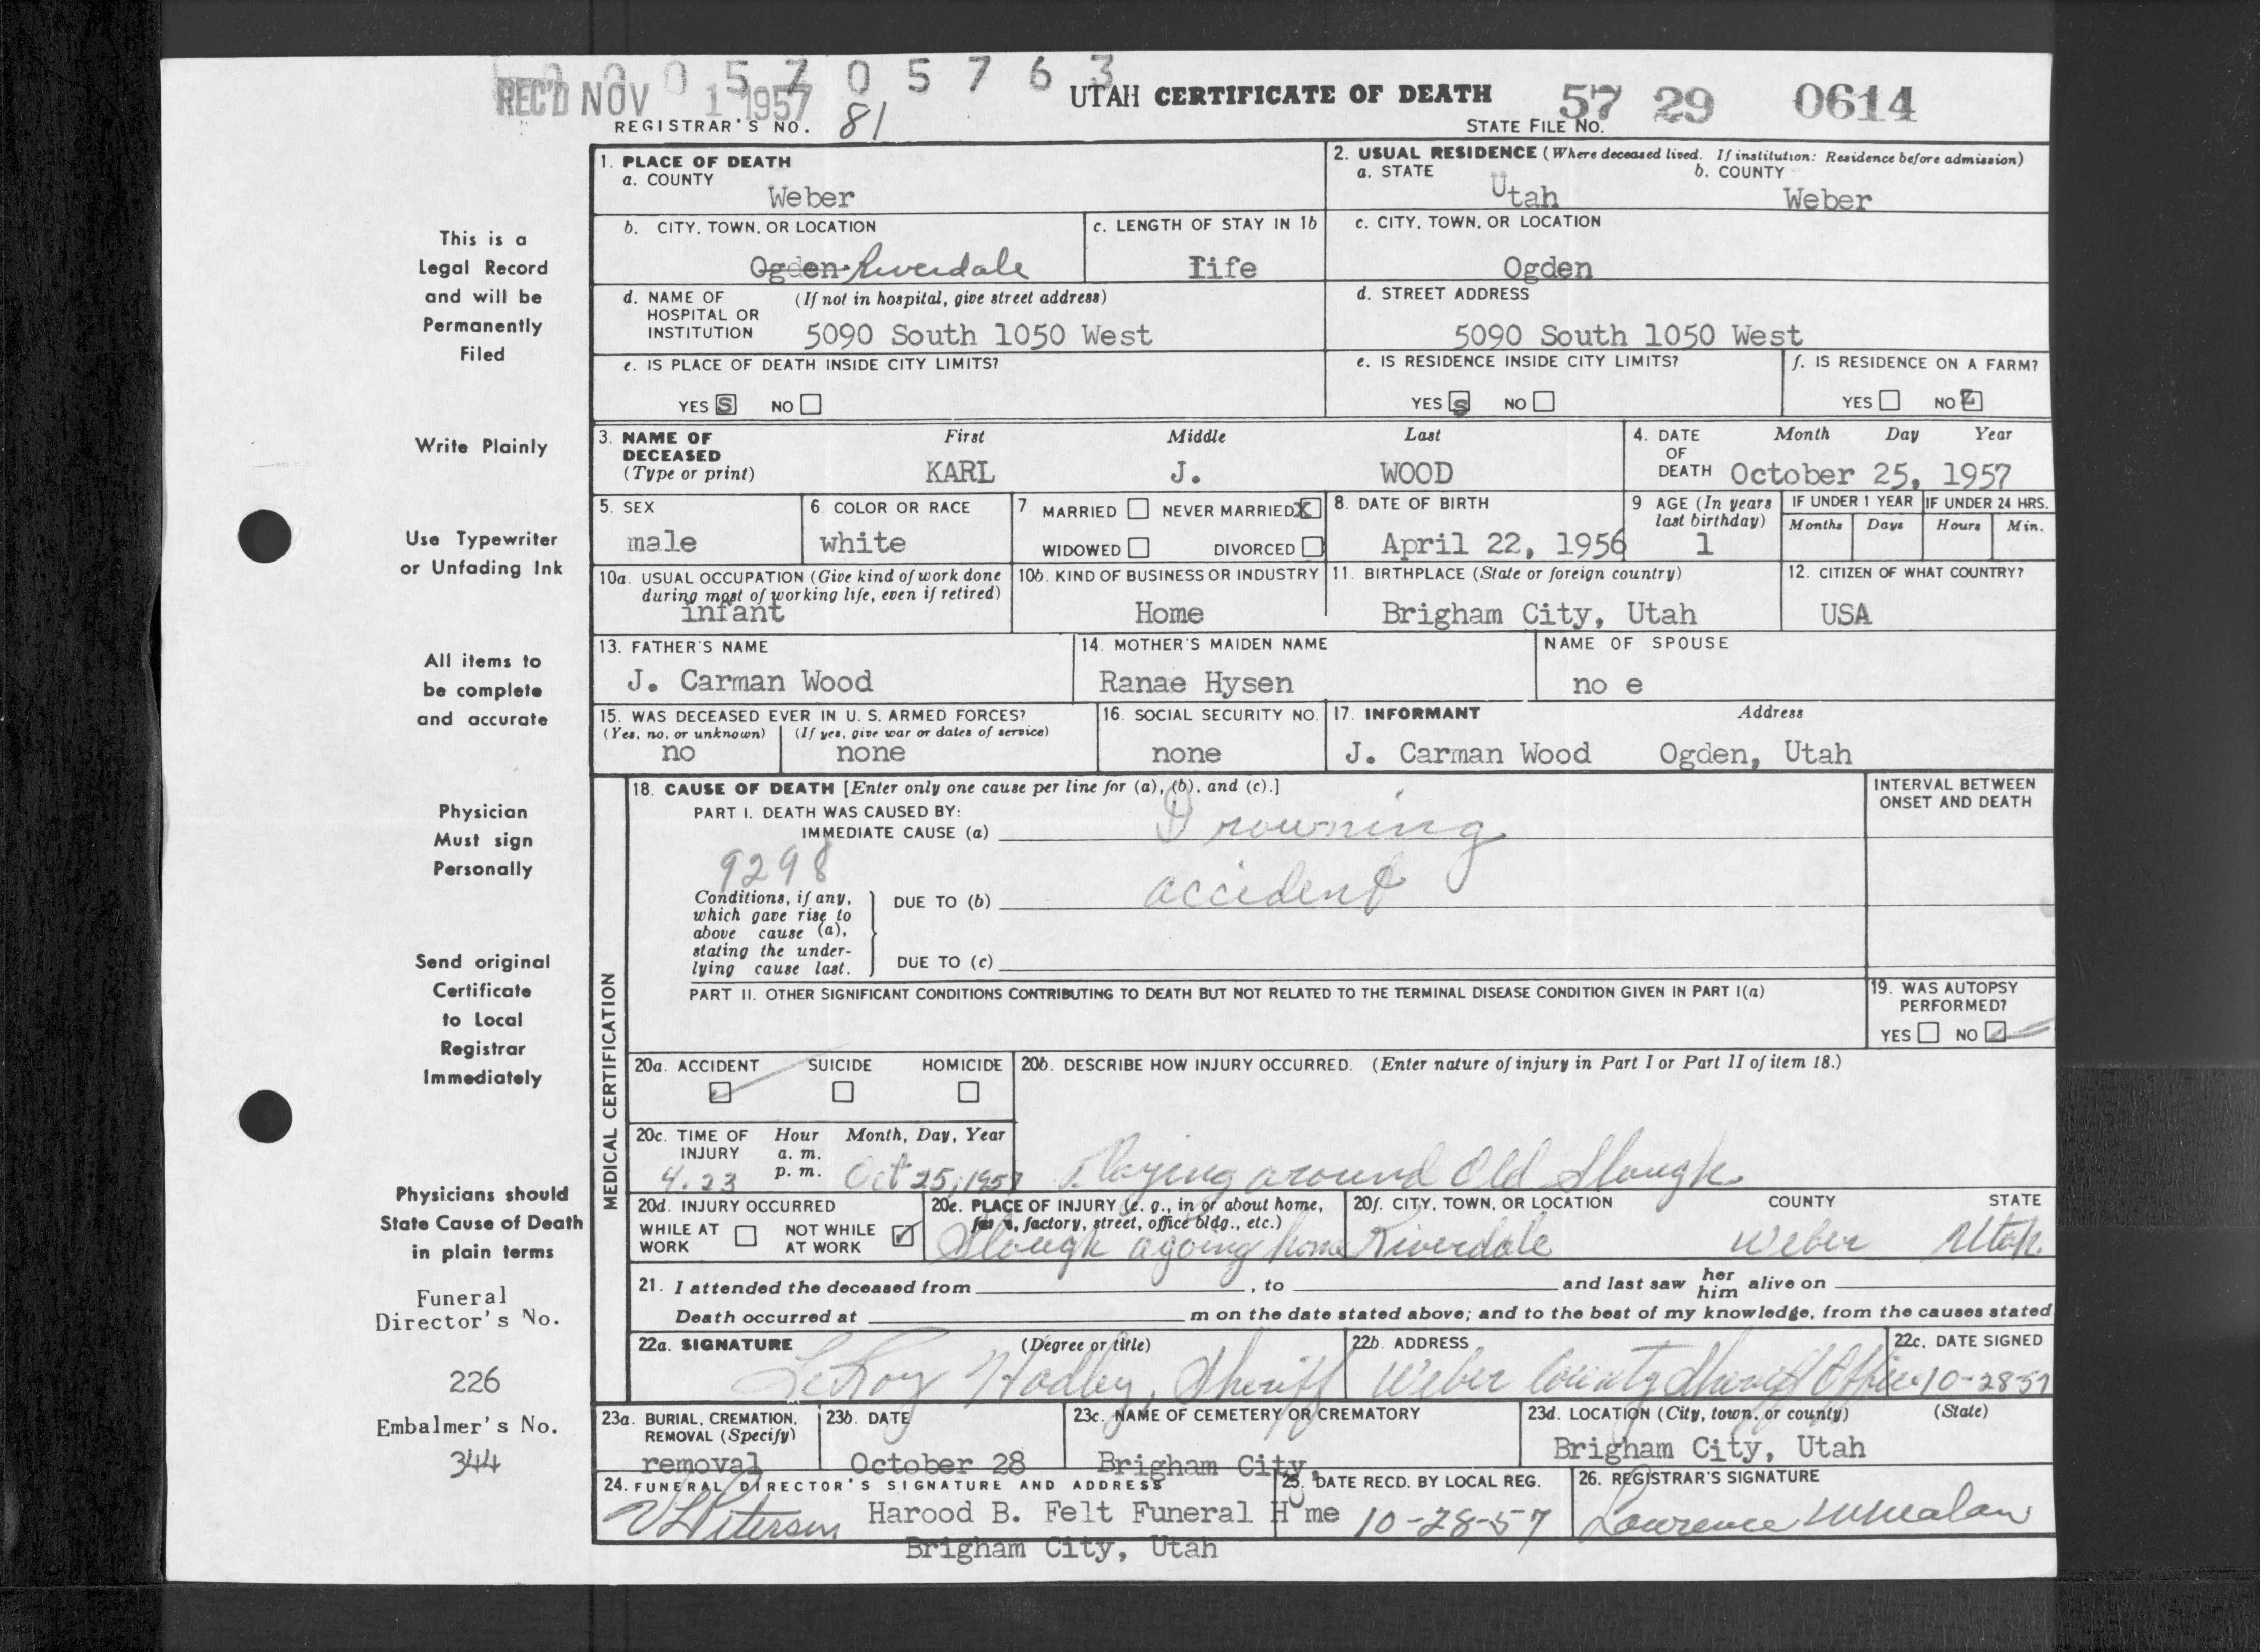 0 0 0 5 7 0 5 7 6 3
REC'D NOV 1 1957
UTAH CERTIFICATE OF DEATH
57 29 0614
REGISTRAR'S NO. 81
STATE FILE NO.
1. PLACE OF DEATH
a. COUNTY
Weber
2. USUAL RESIDENCE (Where deceased lived. If institution: Residence before admission)
a. STATE b. COUNTY
Utah Weber
b. CITY, TOWN, OR LOCATION
Ogden Riverdale
c. LENGTH OF STAY IN 1b
life
c. CITY, TOWN, OR LOCATION
Ogden
d. NAME OF (If not in hospital, give street address)
HOSPITAL OR
INSTITUTION 5090 South 1050 West
d. STREET ADDRESS
5090 South 1050 West
e. IS PLACE OF DEATH INSIDE CITY LIMITS?
YES S NO
e. IS RESIDENCE INSIDE CITY LIMITS?
YES s NO
f. IS RESIDENCE ON A FARM?
YES NO
3. NAME OF First Middle Last
DECEASED
(Type or print) KARL J. WOOD
4. DATE Month Day Year
OF
DEATH October 25, 1957
5. SEX
male
6. COLOR OR RACE
white
7. MARRIED NEVER MARRIED X
WIDOWED DIVORCED
8. DATE OF BIRTH
April 22, 1956
9 AGE (In years
last birthday)
1
IF UNDER 1 YEAR IF UNDER 24 HRS.
Months Days Hours Min.
10a. USUAL OCCUPATION (Give kind of work done
during most of working life, even if retired)
infant
10b. KIND OF BUSINESS OR INDUSTRY
Home
11. BIRTHPLACE (State or foreign country)
Brigham City, Utah
12. CITIZEN OF WHAT COUNTRY?
USA
13. FATHER'S NAME
J. Carman Wood
14. MOTHER'S MAIDEN NAME
Ranae Hysen
NAME OF SPOUSE
no e
15. WAS DECEASED EVER IN U. S. ARMED FORCES?
(Yes, no, or unknown) (If yes, give war or dates of service)
no none
16. SOCIAL SECURITY NO.
none
17. INFORMANT Address
J. Carman Wood Ogden, Utah
MEDICAL CERTIFICATION
18. CAUSE OF DEATH [Enter only one cause per line for (a), (b), and (c).]
PART I. DEATH WAS CAUSED BY:
IMMEDIATE CAUSE (a) Drowning
9298
Conditions, if any,
which gave rise to
above cause (a),
stating the under-
lying cause last.
DUE TO (b) accident
DUE TO (c)
INTERVAL BETWEEN
ONSET AND DEATH
PART II. OTHER SIGNIFICANT CONDITIONS CONTRIBUTING TO DEATH BUT NOT RELATED TO THE TERMINAL DISEASE CONDITION GIVEN IN PART I(a)
19. WAS AUTOPSY
PERFORMED?
YES NO
20a. ACCIDENT SUICIDE HOMICIDE
20b. DESCRIBE HOW INJURY OCCURRED. (Enter nature of injury in Part I or Part II of item 18.)
Playing around Old Slough
20c. TIME OF Hour Month, Day, Year
INJURY a. m.
4.23 p. m. Oct 25, 1957
20d. INJURY OCCURRED
WHILE AT NOT WHILE
WORK AT WORK
20e. PLACE OF INJURY (e. g., in or about home,
farm, factory, street, office bldg., etc.)
Slough home
20f. CITY, TOWN, OR LOCATION COUNTY STATE
Riverdale Weber Utah
21. I attended the deceased from , to and last saw her him alive on
Death occurred at m on the date stated above; and to the best of my knowledge, from the causes stated
22a. SIGNATURE (Degree or title)
LeRoy Hadley, Sheriff
22b. ADDRESS
Weber County Sheriff Office
22c. DATE SIGNED
10-28-57
23a. BURIAL, CREMATION,
REMOVAL (Specify)
removal
23b. DATE
October 28
23c. NAME OF CEMETERY OR CREMATORY
Brigham City,
23d. LOCATION (City, town, or county) (State)
Brigham City, Utah
24. FUNERAL DIRECTOR'S SIGNATURE AND ADDRESS
V L Petersen Harood B. Felt Funeral Home
Brigham City, Utah
25. DATE RECD. BY LOCAL REG.
10-28-57
26. REGISTRAR'S SIGNATURE
Lawrence M Malan
This is a
Legal Record
and will be
Permanently
Filed
Write Plainly
Use Typewriter
or Unfading Ink
All items to
be complete
and accurate
Physician
Must sign
Personally
Send original
Certificate
to Local
Registrar
Immediately
Physicians should
State Cause of Death
in plain terms
Funeral
Director's No.
226
Embalmer's No.
344